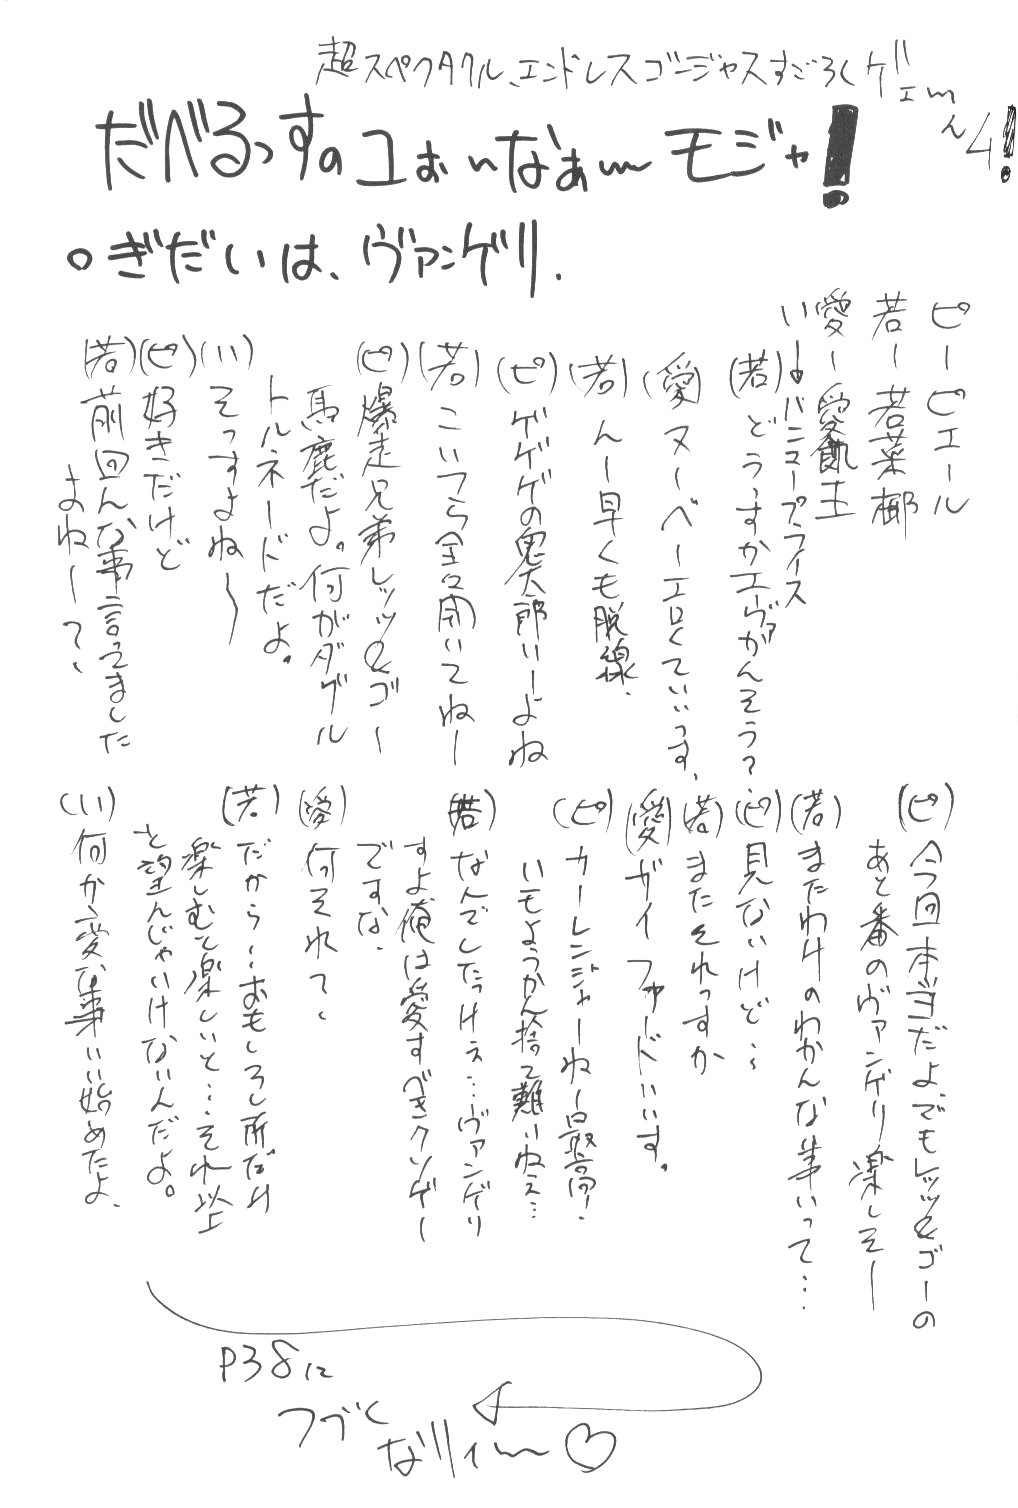 超スペクタクル、エンドレスゴージャスすごろくゲェm
ん4!
だべるっすのコぉぃなぁ〜モジャ!
○ぎだいは、ヴァンゲリ.
ピーピエール
若ー若菜椰
愛ー愛飢土
い→バニュープライス
(若)どうっすかエーヴァがんそう?
(愛)ヌーベーエロくていいっす、
(若)んー早くも脱線.
(ピ)ゲゲゲの鬼太郎いーよね
(若)こいつら全々聞いてねー
(ピ)爆走兄弟レッツ&ゴー
馬鹿だよ。何がダブル
トルネードだよ。
(い)そっすよね〜
(ピ)好きだけど
(若)前回んな事言ってました
よねーって、
(ピ)今回本当だよ、でもレッツ&ゴーの
あと番のヴァンゲリ楽しそー
(若)またわけのわかんな事いって…
(ピ)見ないけど…
(若)またそれっすか
(愛)ガイファードいいす。
(ピ)カーレンジャーね〜最高!
いもようかん捨て難いねぇ…
(若)なんでしたっけぇ…ヴァンゲリ
すよ俺は愛すべきクソゲー
ですな.
(愛)何それて、
(若)だから〜おもしろし所だけ
楽しむと楽しいと…それ以上
を望んじゃいけないんだよ。
(い)何か変な事いい始めたよ、
P38に
つづく
なりィ〜♡